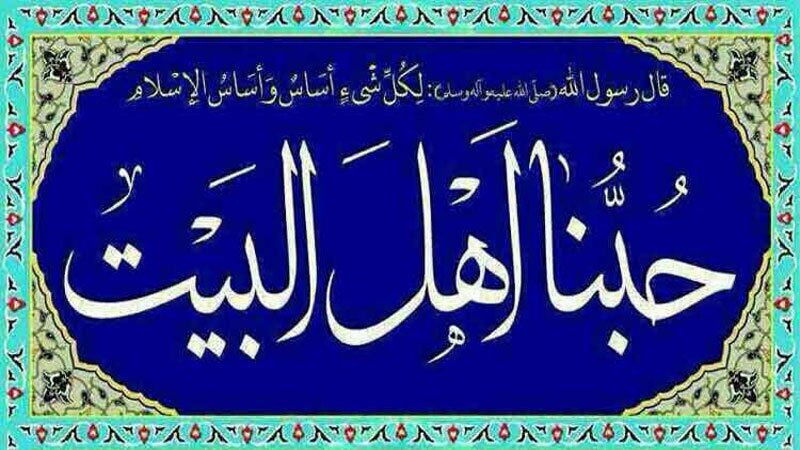 قال رسول الله (صلّى الله عليه وآله وسلم): لِكُلِّ شَىءٍ أسَاسُ وَأسَاسُ الإسْلامِ
حُبُّنا اَهْلَ البَيْت